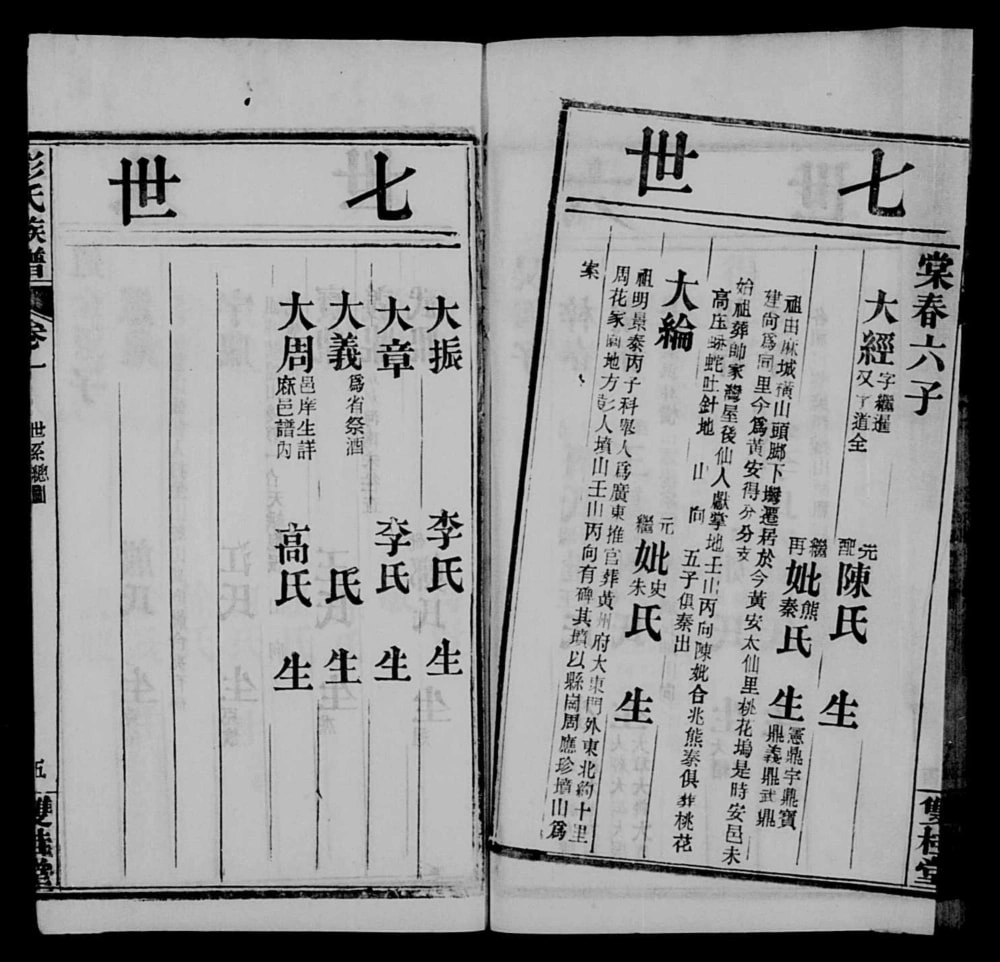 七世
棠春六子
大經 字繼暹 又字道全 元配陳氏 生
繼妣熊氏 再秦氏 生 憲鼎宇鼎寶鼎義鼎武鼎
祖由麻城橫山頭腳下 遷居於今黃安太仙里桃花塢是時安邑未
建尚爲同里今爲黃安得分分支
始祖葬帥家灣屋後仙人獻掌地壬山丙向陳妣合兆熊秦俱葬桃花
高 蛇吐針地 山 向 五子俱秦出
大綸 元妣史氏 繼朱氏 生
祖明景泰丙子科舉人爲廣東推官葬黃州府大東門外東北約十里
周花家 地方彭人墳山壬山丙向有碑其墳以縣崗周應珍墳山爲
案
雙桂堂
七世
大振 李氏 生
大章 李氏 生
大義 爲省祭酒 氏 生
大周 邑庠生詳麻邑譜內 高氏 生
彭氏族譜 卷一 世系總圖 五 雙桂堂